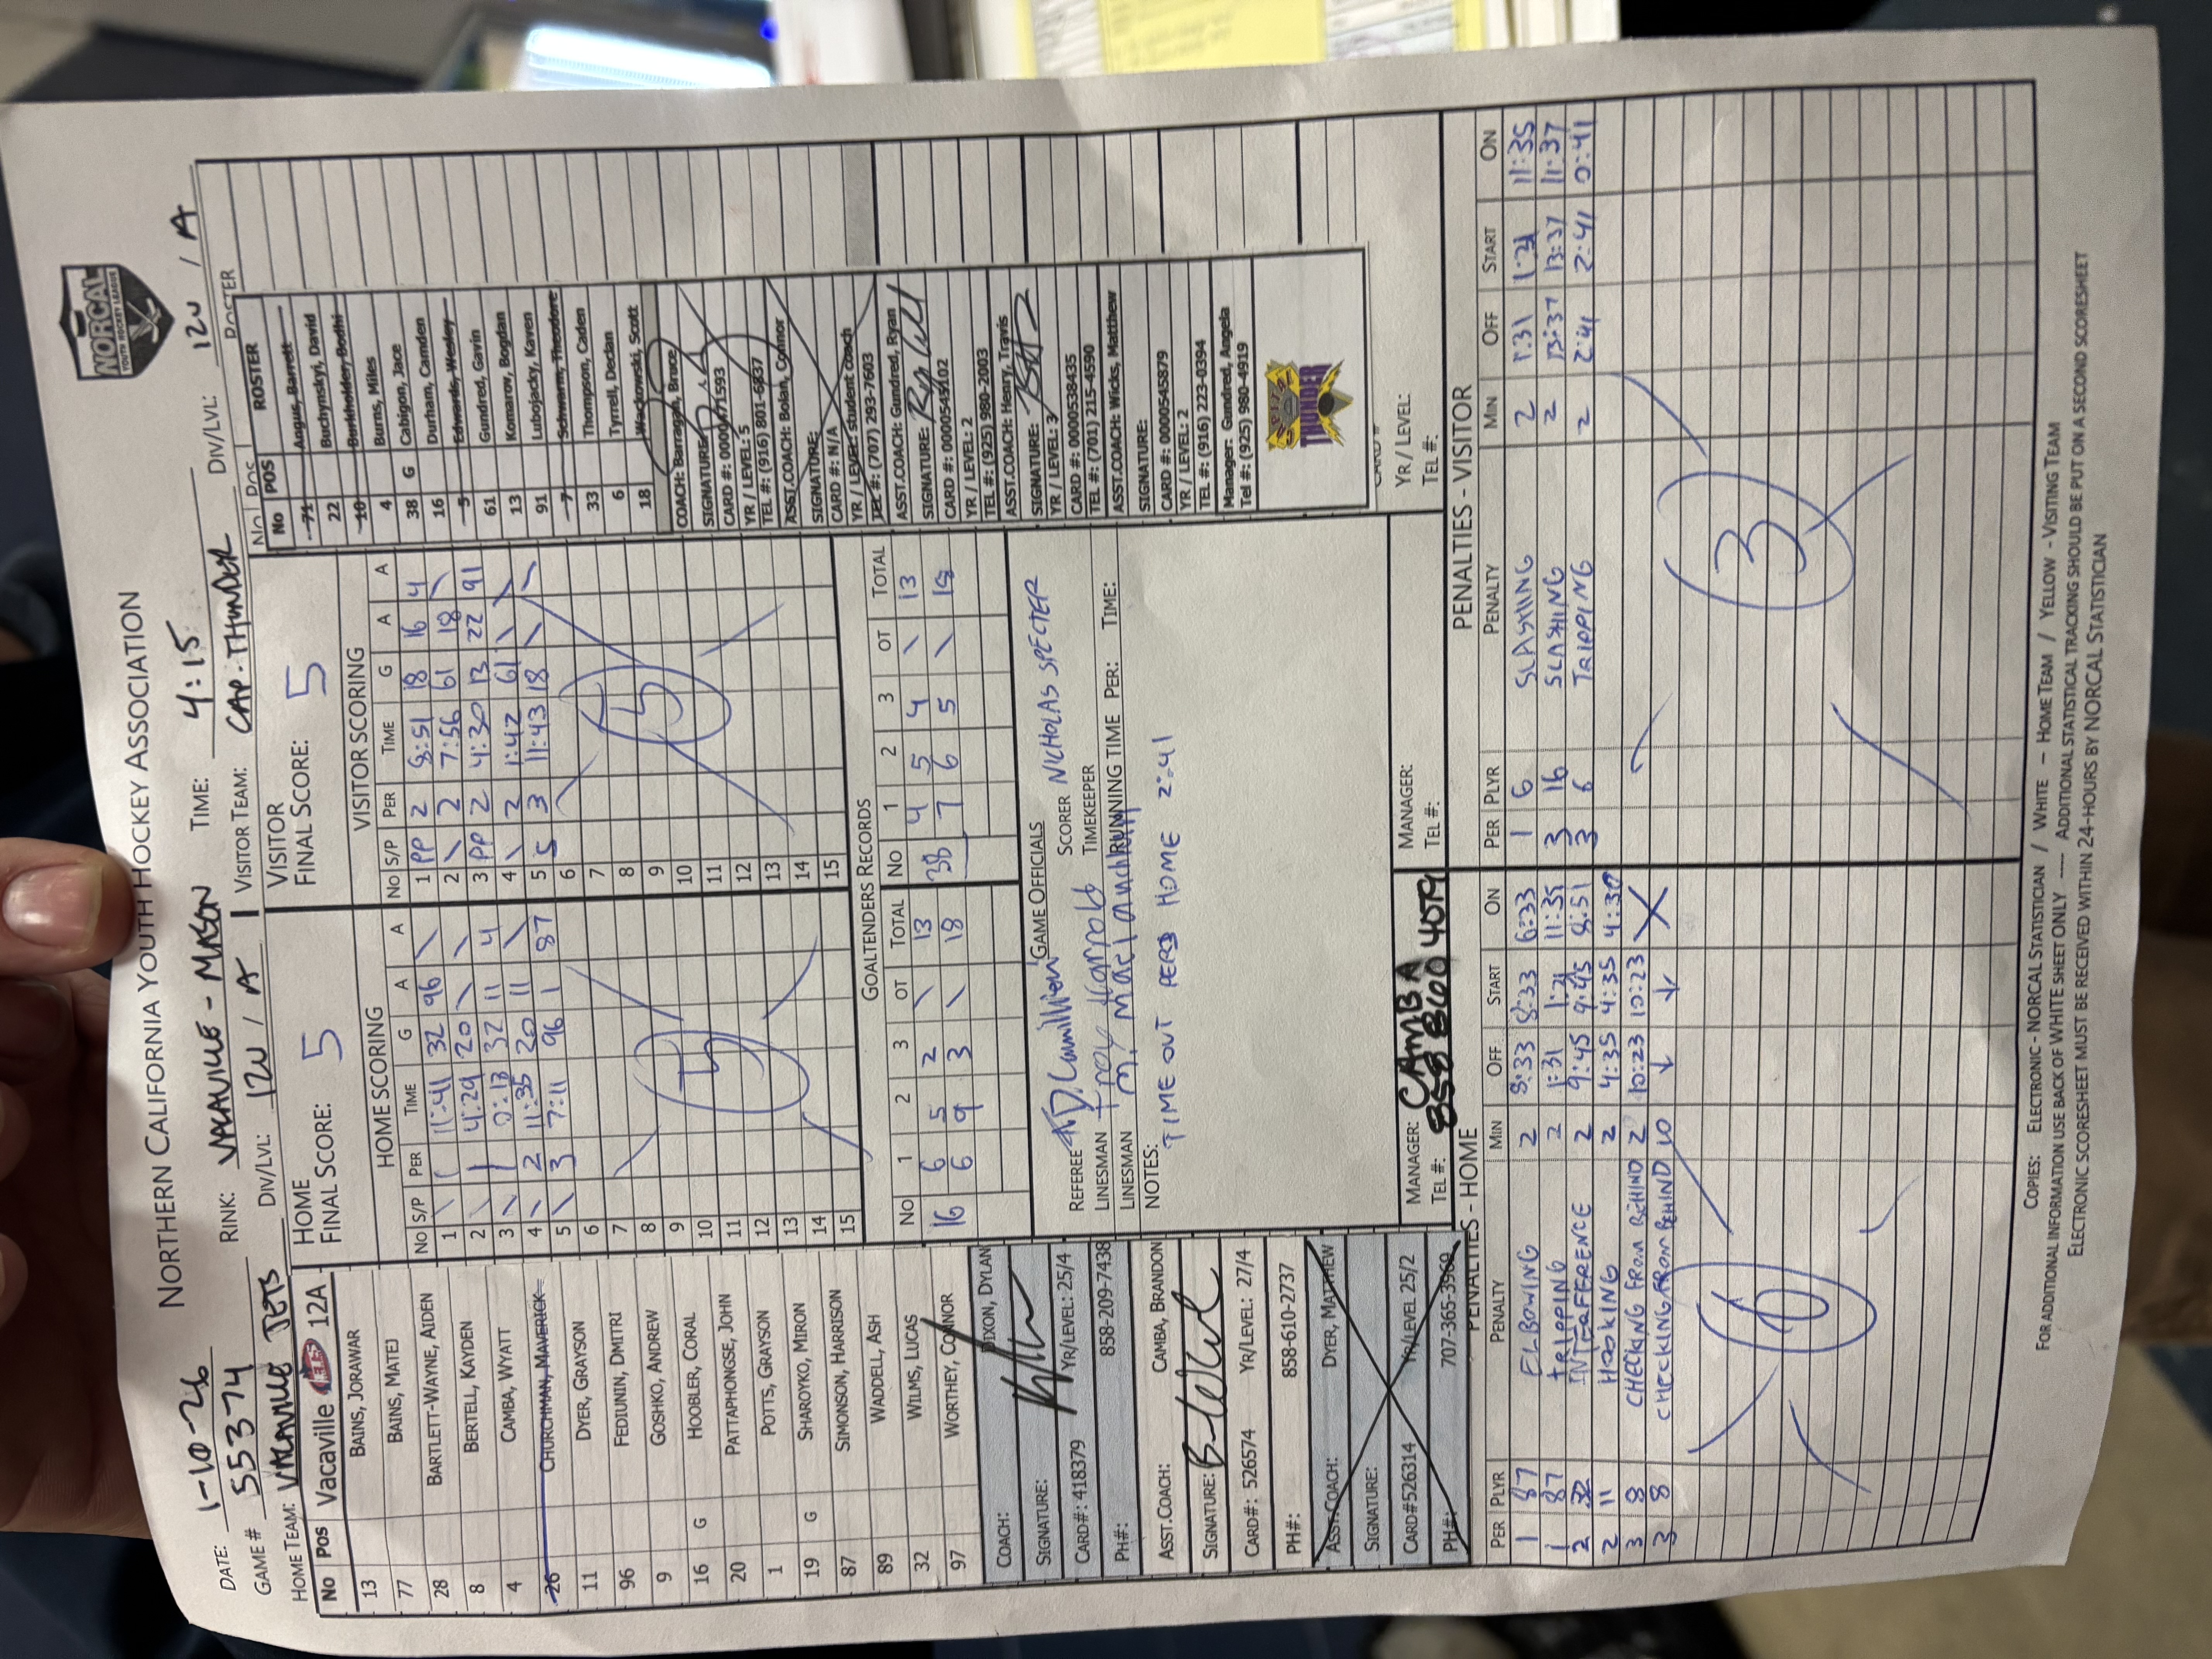 NORTHERN CALIFORNIA YOUTH HOCKEY ASSOCIATION
NORCAL
YOUTH HOCKEY LEAGUE
DATE: 1-10-26 RINK: VACAVILLE - MASON TIME: 4:15 DIV/LVL: 12U / A
GAME # 55374 DIV/LVL: 12U / A VISITOR TEAM: CAP. THUNDER
HOME TEAM: VACAVILLE JETS
No Pos Vacaville JETS 12A
13 BAINS, JORAWAR
77 BAINS, MATEJ
28 BARTLETT-WAYNE, AIDEN
8 BERTELL, KAYDEN
4 CAMBA, WYATT
26 CHURCHMAN, MAVERICK
11 DYER, GRAYSON
96 FEDIUNIN, DMITRI
9 GOSHKO, ANDREW
16 G HOOBLER, CORAL
20 PATTAPHONGSE, JOHN
1 POTTS, GRAYSON
19 G SHAROYKO, MIRON
87 SIMONSON, HARRISON
89 WADDELL, ASH
32 WILMS, LUCAS
97 WORTHEY, CONNOR
COACH: DIXON, DYLAN
SIGNATURE:
CARD#: 418379 YR/LEVEL: 25/4
PH#: 858-209-7438
ASST.COACH: CAMBA, BRANDON
SIGNATURE:
CARD#: 526574 YR/LEVEL: 27/4
PH#: 858-610-2737
ASST.COACH: DYER, MATTHEW
SIGNATURE:
CARD#526314 YR/LEVEL 25/2
PH#: 707-365-3969
HOME
FINAL SCORE: 5
HOME SCORING
No S/P PER TIME G A A
1 \ 1 11:41 32 96 \
2 \ 1 4:29 20 \ \
3 \ 1 0:13 32 11 4
4 \ 2 11:35 20 11 \
5 \ 3 7:11 96 1 87
6
7
8
9
10
11
12
13
14
15
5
VISITOR
FINAL SCORE: 5
VISITOR SCORING
No S/P PER TIME G A A
1 PP 2 8:51 18 16 4
2 \ 2 7:56 61 18 \
3 PP 2 4:30 13 22 91
4 \ 2 1:42 61 \ \
5 S 3 11:43 18 \ \
6
7
8
9
10
11
12
13
14
15
5
GOALTENDERS RECORDS
No 1 2 3 OT TOTAL No 1 2 3 OT TOTAL
6 5 2 \ 13 4 5 4 \ 13
16 6 9 3 \ 18 38 7 6 5 \ 18
GAME OFFICIALS
REFEREE SCORER NICHOLAS SPECTER
LINESMAN Troy TIMEKEEPER
LINESMAN RUNNING TIME PER: TIME:
NOTES:
TIME OUT PER3 HOME 2:41
MANAGER: CAMBA
TEL #: 858 860 4079
MANAGER:
TEL #:
No POS ROSTER
No POS ROSTER
71 Angus, Barrett
22 Buchynskyi, David
10 Burkholder, Bodhi
4 Burns, Miles
38 G Cabigon, Jace
16 Durham, Camden
5 Edwards, Wesley
61 Gundred, Gavin
13 Komarov, Bogdan
91 Lubojacky, Kaven
7 Schwarm, Theodore
33 Thompson, Caden
6 Tyrrell, Declan
18 Wackowski, Scott
COACH: Barragan, Bruce
SIGNATURE:
CARD #: 0000471593
YR / LEVEL: 5
TEL #: (916) 801-6837
ASST.COACH: Bolan, Connor
SIGNATURE:
CARD #: N/A
YR / LEVEL: student coach
TEL #: (707) 293-7603
ASST.COACH: Gundred, Ryan
SIGNATURE:
CARD #: 0000545102
YR / LEVEL: 2
TEL #: (925) 980-2003
ASST.COACH: Henry, Travis
SIGNATURE:
YR / LEVEL: 3
CARD #: 0000538435
TEL #: (701) 215-4590
ASST.COACH: Wicks, Matthew
SIGNATURE:
CARD #: 0000545879
YR / LEVEL: 2
TEL #: (916) 223-0394
Manager: Gundred, Angela
Tel #: (925) 980-4919
THUNDER
YR / LEVEL:
TEL #:
PENALTIES - HOME
PER PLYR PENALTY MIN OFF START ON
1 87 ELBOWING 2 8:33 8:33 6:33
1 87 TRIPPING 2 1:31 1:21 11:35
2 32 INTERFERENCE 2 9:45 9:45 8:51
2 11 HOOKING 2 4:35 4:35 4:30
3 8 CHECKING FROM BEHIND 2 10:23 10:23
3 8 CHECKING FROM BEHIND 10 ↓ ↓
6
PENALTIES - VISITOR
PER PLYR PENALTY MIN OFF START ON
1 6 SLASHING 2 1:31 1:21 11:35
3 16 SLASHING 2 13:37 13:37 11:37
3 6 TRIPPING 2 2:41 2:41 0:41
3
COPIES: ELECTRONIC - NORCAL STATISTICIAN / WHITE - HOME TEAM / YELLOW - VISITING TEAM
FOR ADDITIONAL INFORMATION USE BACK OF WHITE SHEET ONLY ---- ADDITIONAL STATISTICAL TRACKING SHOULD BE PUT ON A SECOND SCORESHEET
ELECTRONIC SCORESHEET MUST BE RECEIVED WITHIN 24-HOURS BY NORCAL STATISTICIAN